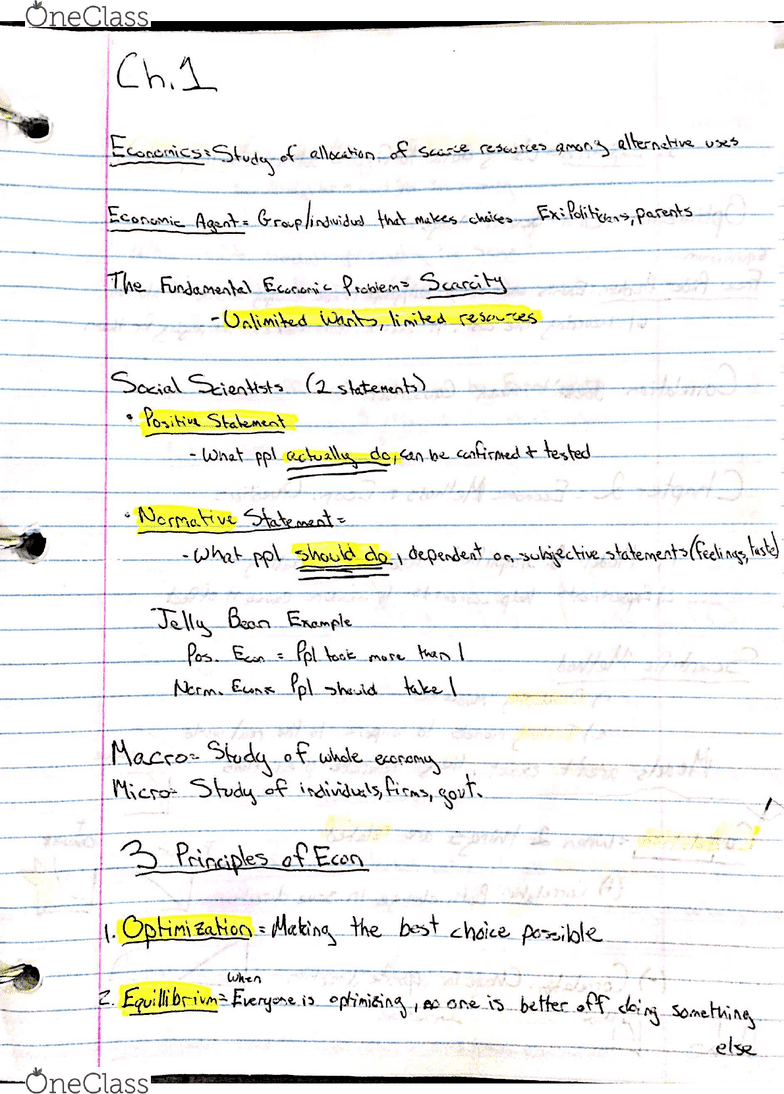 OneClass
Ch.1
Economics = Study of allocation of scarce resources among alternative uses
Economic Agent = Group/individual that makes choices Ex: Politicians, parents
The Fundamental Economic Problem = Scarcity
- Unlimited Wants, limited resources
Social Scientists (2 statements)
• Positive Statement
- What ppl actually do, can be confirmed + tested
• Normative Statement =
- What ppl should do, dependent on subjective statements (feelings, taste)
Jelly Bean Example
Pos. Econ = Ppl took more than 1
Norm. Econ = Ppl should take 1
Macro = Study of whole economy
Micro = Study of individuals, firms, govt.
3 Principles of Econ
1. Optimization = Making the best choice possible
When
2. Equillibrium = Everyone is optimizing, no one is better off doing something
else
OneClass